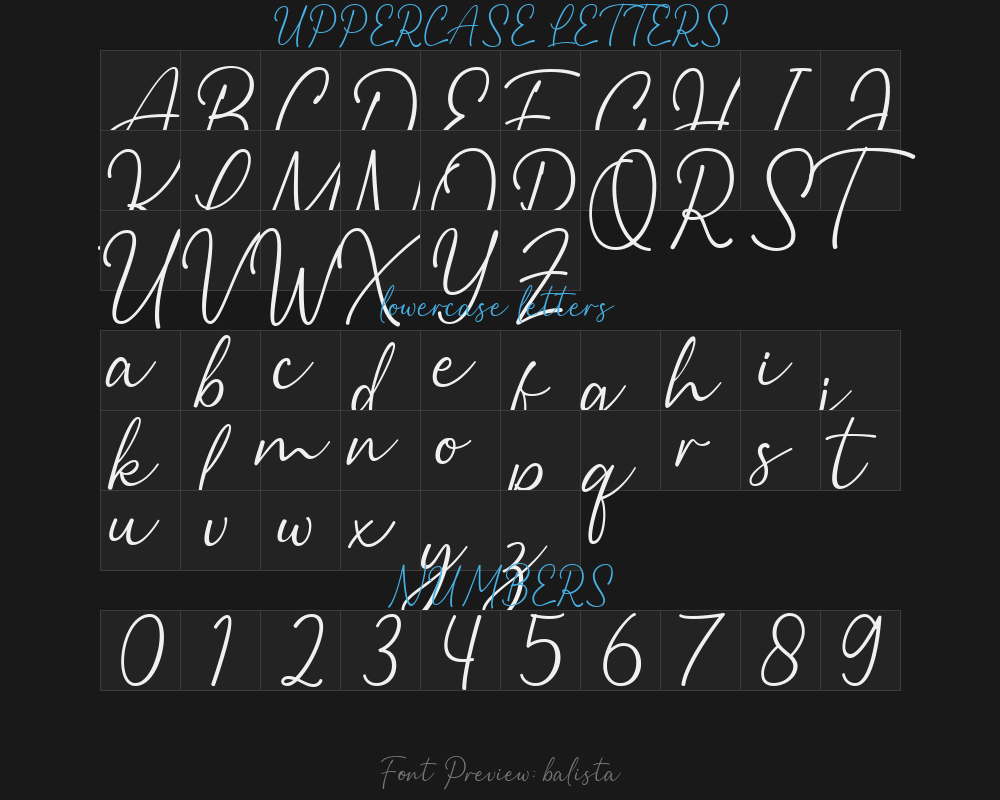 UPPERCASE LETTERS
A B C D E F G H I J
K L M N O P Q R S T
U V W X Y Z
lowercase letters
a b c d e f g h i j
k l m n o p q r s t
u v w x y z
NUMBERS
0 1 2 3 4 5 6 7 8 9
Font Preview: balista